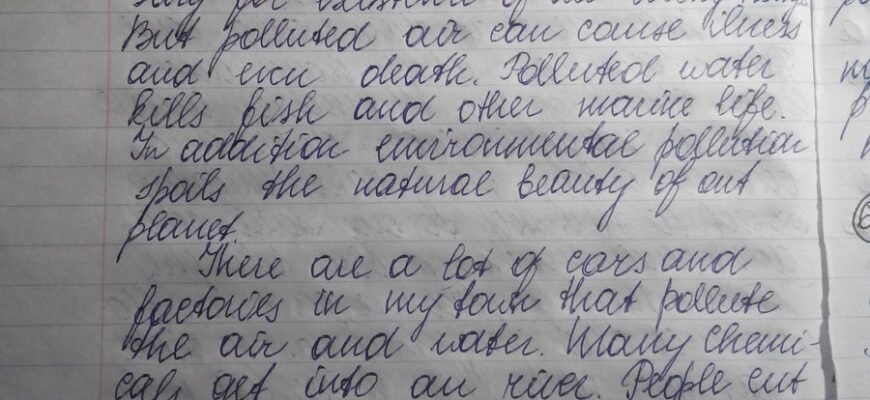 for existence of
But polluted air can cause illness
and even death. Polluted water
kills fish and other marine life.
In addition environmental pollution
spoils the natural beauty of out
planet.
There are a lot of cars and
factories in my town that pollute
the air and water. Many chemi-
cals get into an river. People cut